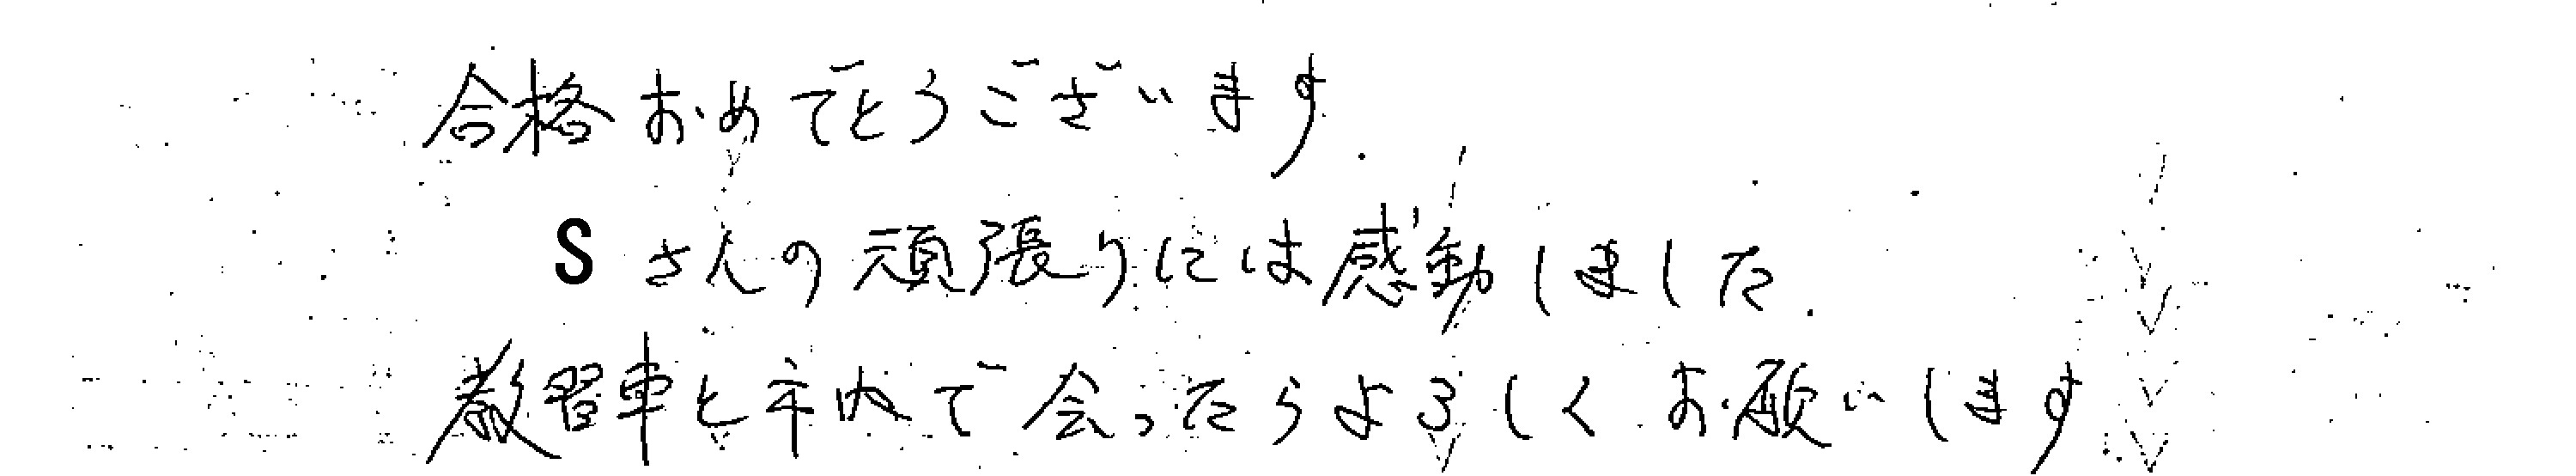 合格おめでとうございます.
Sさんの頑張りには感動しました.
教習車と市内で会ったらよろしくお願いします